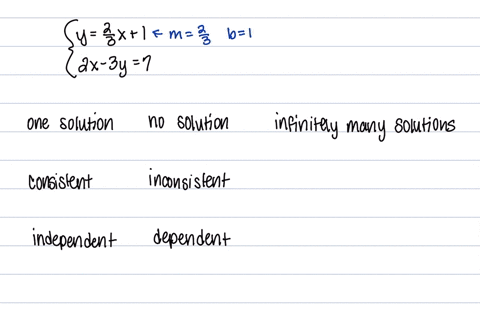 y = 2/3 x + 1 ← m = 2/3 b = 1
2x - 3y = 7
one solution no solution infinitely many solutions
consistent inconsistent
independent dependent